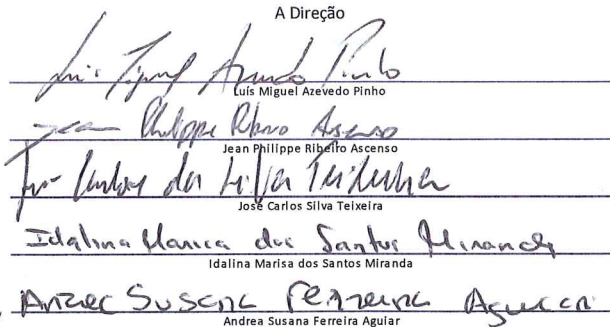 A Direção
Luis Miguel Azevedo Pinho
Luís Miguel Azevedo Pinho
Jean Philippe Ribeiro Ascenso
Jean Philippe Ribeiro Ascenso
José Carlos da Silva Teixeira
José Carlos Silva Teixeira
Idalina Marisa dos Santos Miranda
Idalina Marisa dos Santos Miranda
Andrea Susana Ferreira Aguiar
Andrea Susana Ferreira Aguiar